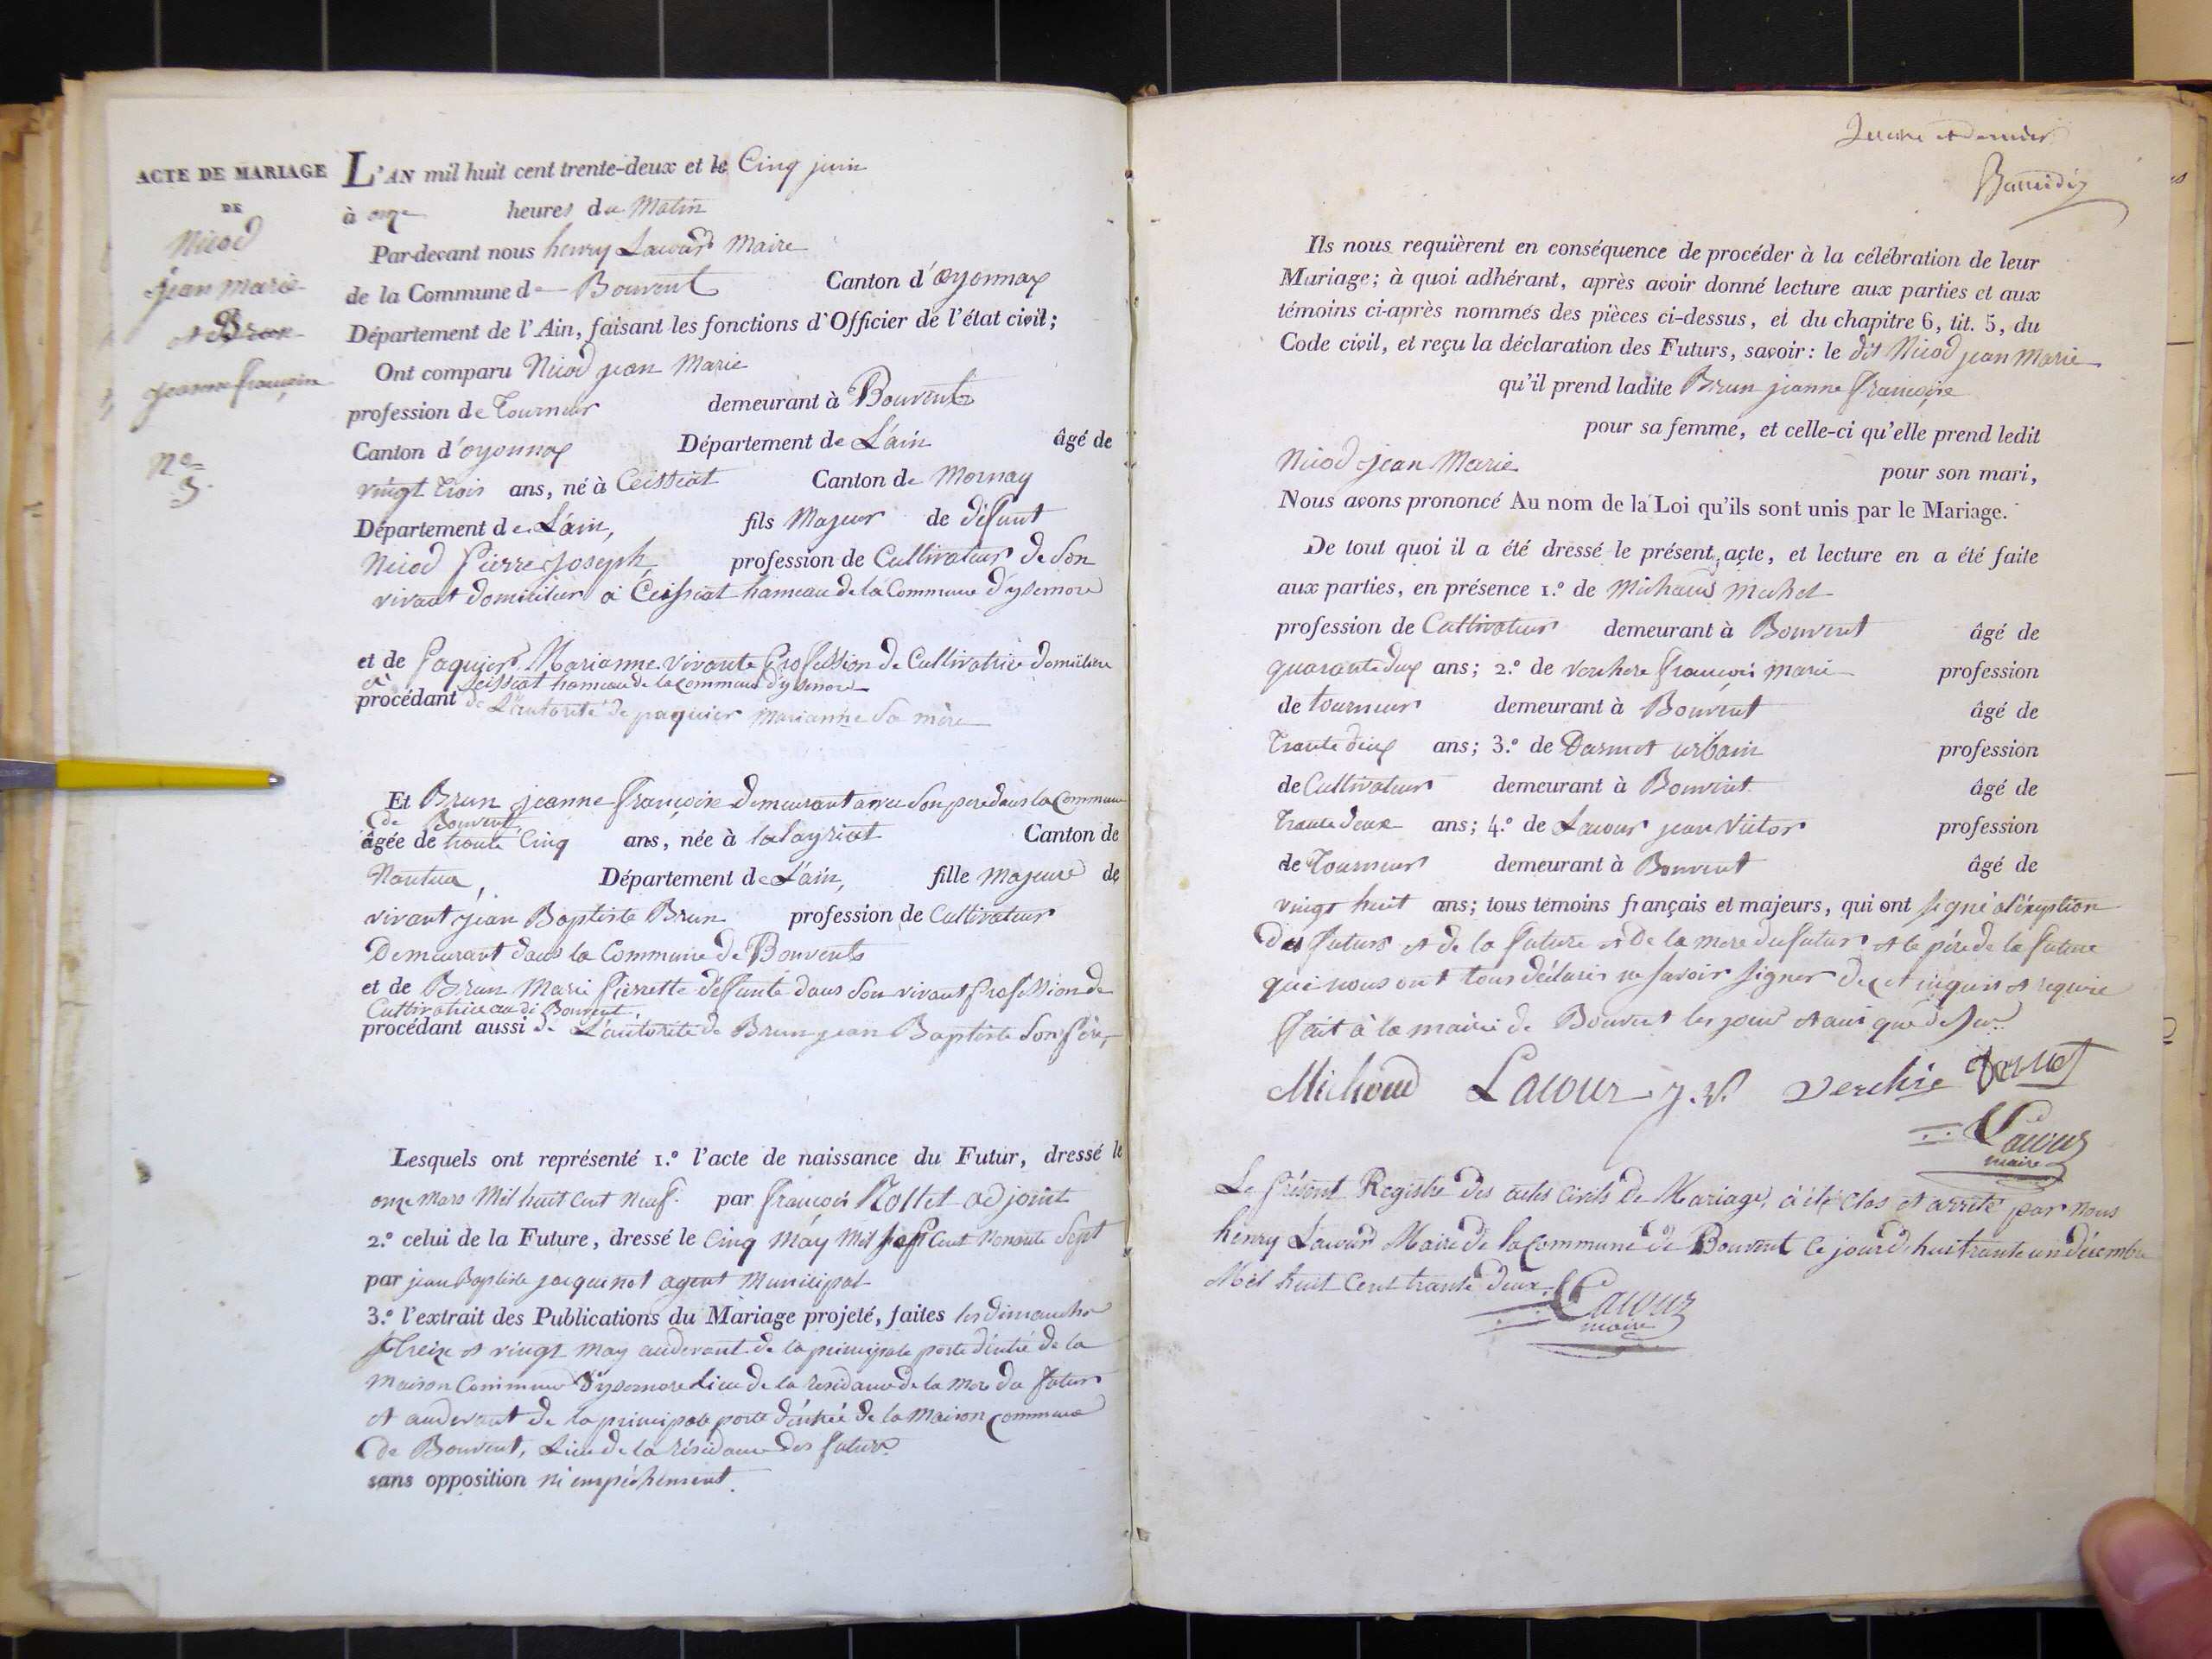 ACTE DE MARIAGE
DE
Nicod
jean marie
et Brun
jeanne françoise
N.o
3.
L'AN mil huit cent trente-deux et le Cinq juin
à onze heures du Matin
Par-devant nous henry Lacour Maire
de la Commune de Bouvent Canton d'oyonnax
Département de l'Ain, faisant les fonctions d'Officier de l'état civil;
Ont comparu Nicod jean Marie
profession de Tourneur demeurant à Bouvent
Canton d'oyonnax Département de L'ain âgé de
vingt trois ans, né à Ceissiat Canton de Mornay
Département de L'ain, fils Majeur de défunt
Nicod Pierre Joseph, profession de Cultivateur de Son
vivant domicilier a Ceissiat hameau de la Commune d'ysernore
et de paquier Marianne vivante profession de Cultivatrice domiciliere
a Ceissiat hameau de la commune d'ysernore
procédant de L'autorité de paquier marianne Sa mère
Et Brun jeanne françoise demeurant avec Son pere dans la Commune
de Bouvent,
âgée de trante Cinq ans, née à lalayriat Canton de
Nantua, Département de L'ain, fille majeure de
vivant jean Baptiste Brun profession de Cultivateur
Demeurant dans la Commune de Bouvent
et de Brun Marie Pierrette défunte dans Son vivant profession de
Cultivatrice au di Bouvent,
procédant aussi de L'autorité de Brun jean Baptiste Son père,
Lesquels ont représenté 1.º l'acte de naissance du Futur, dressé le
onze mars Mil huit Cent neuf. par françois Nollet adjoint
2.º celui de la Future, dressé le Cinq May Mil Sept Cent Nonante Sept
par jean Baptiste jacquinot agent Municipal
3.º l'extrait des Publications du Mariage projeté, faites les dimanche
Treize et vingt may audevant de la principale porte d'entré de la
maison Commune d'ysernore Lieu de la residance de la mere du futur
et audevant de la principale porte d'entrée de la Maison commune
de Bouvent, Lieu de la résidance des futurs
sans opposition ni empéchement.
et dernier
Ils nous requièrent en conséquence de procéder à la célébration de leur
Mariage; à quoi adhérant, après avoir donné lecture aux parties et aux
témoins ci-après nommés des pièces ci-dessus, et du chapitre 6, tit. 5, du
Code civil, et reçu la déclaration des Futurs, savoir: le dit Nicod jean Marie
qu'il prend ladite Brun jeanne françoise
pour sa femme, et celle-ci qu'elle prend ledit
Nicod jean Marie pour son mari,
Nous avons prononcé Au nom de la Loi qu'ils sont unis par le Mariage.
De tout quoi il a été dressé le présent acte, et lecture en a été faite
aux parties, en présence 1.º de Michaud Michel
profession de Cultivateur demeurant à Bouvent âgé de
quarante deux ans; 2.º de Verchere françois marie profession
de tourneur demeurant à Bouvent âgé de
Trante deux ans; 3.º de Darmet urbain profession
de Cultivateur demeurant à Bouvent âgé de
Trante deux ans; 4.º de Lacour jean Victor profession
de Tourneur demeurant à Bouvent âgé de
vingt huit ans; tous témoins français et majeurs, qui ont signé a l'éxeption
du futur et de la future et De la mere du futur et le père de la future
qui nous ont tous déclarés ne savoir signer de ce enquis et requis
fait à la mairie de Bouvent les jour et ans que dessus
Michoud Lacour J. V. Verchère
Lacour
maire
Le présent Registre des actes Civils de Mariage, à été Clos et arrêté par nous
henry Lacour Maire de la commune de Bouvent Ce jourd'hui trante un décembre
Mil huit Cent trante deux.
Lacour
maire